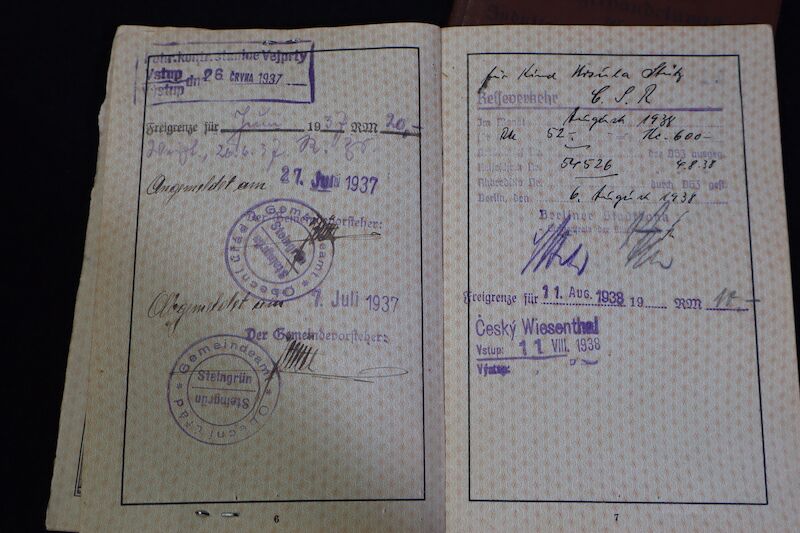 kontr. stanice Vejprty
Vstup dne 26 ČRVNA 1937
Výstup
Freigrenze für Juni 1937 RM 20,-
Angemeldet am 27. Juni 1937
Der Gemeindevorsteher:
Gemeindeamt * Obecní úřad *
Steingrün
Steingrün
Abgemeldet am 7. Juli 1937
Der Gemeindevorsteher:
Gemeindeamt * Obecní úřad *
Steingrün
Steingrün
6
für Kind Ursula
Reiseverkehr C. S. R
Im Monat August 1938
RM 52.- Kc. 600-
durch DB3 ausgeg.
54526 4.8.38
durch DB3 gest.
Berlin, den 6. August 1938
Berliner Stadtbank
Freigrenze für 11. Aug. 1938 19 RM 10.-
Český Wiesenthal
Vstup: 11 VIII. 1938
Výstup:
7